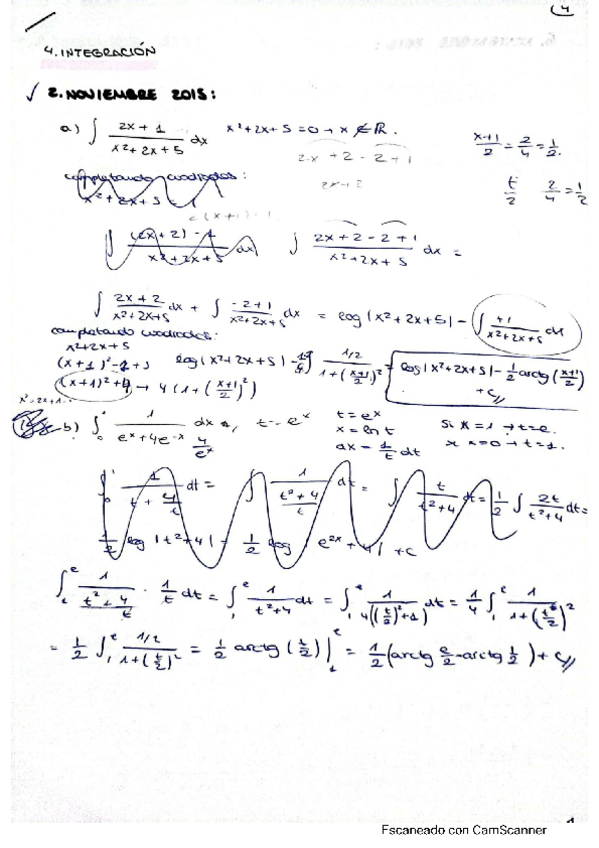 4
4. INTEGRACIÓN
√ 2. NOVIEMBRE 2015:
a) ∫ (2x+1)/(x²+2x+5) dx   x²+2x+5=0 → x ∉ ℝ.
2x+2-2+1
(x+1)/2 = 2/4 = 1/2.
completando cuadrados:
t/2   2/4 = 1/2
x²+2x+5
∫ ((2x+2)-1)/(x²+2x+5) dx   ∫ (2x+2-2+1)/(x²+2x+5) dx =
∫ (2x+2)/(x²+2x+5) dx + ∫ (-2+1)/(x²+2x+5) dx = log|x²+2x+5| - ∫ +1/(x²+2x+5) dx
completando cuadrados:
x²+2x+5
(x+1)²-1+5   log|x²+2x+5| - ∫ (1/2)/(1+((x+1)/2)²) = log|x²+2x+5| - 1/2 arctg((x+1)/2) + C//
(x+1)²+4 → 4(1+((x+1)/2)²)
x²+2x+1
b) ∫₀¹ 1/(eˣ+4e⁻ˣ) dx   4/eˣ   t=eˣ   t=eˣ   si x=1 → t=e.
x=ln t   si x=0 → t=1.
dx = 1/t dt
∫₀¹ 1/(t+4/t) dt = ∫ 1/((t²+4)/t) dt = ∫ t/(t²+4) dt = 1/2 ∫ 2t/(t²+4) dt =
1/2 log|t²+4| = 1/2 log|e²ˣ+4| + C
∫₁ᵉ 1/((t²+4)/t) · 1/t dt = ∫₁ᵉ 1/(t²+4) dt = ∫₁ᵉ 1/(4((t/2)²+1)) dt = 1/4 ∫₁ᵉ 1/(1+(t/2)²)
= 1/2 ∫₁ᵉ (1/2)/(1+(t/2)²) = 1/2 arctg(t/2)|₁ᵉ = 1/2 (arctg e/2 - arctg 1/2) + C//
1
Escaneado con CamScanner